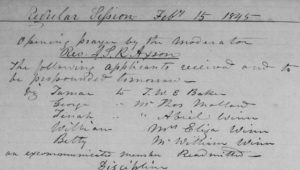 Regular Session Feby 15 1845
Opening prayer by the moderator
Rev. I. S. K. Axson
The following applicants received and to
be propounded tomorrow -
viz Tamar to T. W. E. Baker
George " Mr Thos Mallard
Sarah " " Abiel Winn
William " Mrs Eliza Winn
Betty " Mr William Winn
an excommunicated member Readmitted -
Discipline